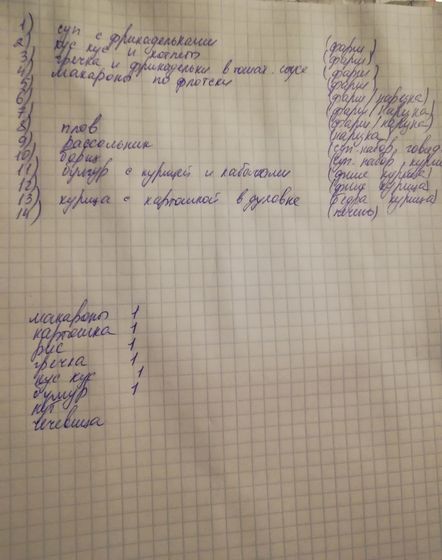 1) суп с фрикадельками (фарш)
2) кус кус и котлеты (фарш)
3) гречка и фрикадельки в томат. соусе (фарш)
4) макароны по флотски (фарш)
5) (фарш/нарезка)
6) (фарш/нарезка)
7) (фарш/нарезка)
8) плов (нарезка)
9) рассольник (суп. набор, говяд
10) борщ (суп. набор, куриц
11) булгур с курицей и кабачками (филе курица)
12) (филе курица)
13) курица с картошкой в духовке (бедра курица)
14) (печень)
макароны 1
картошка 1
рис 1
гречка 1
кус кус 1
булгур 1
нут
чечевица